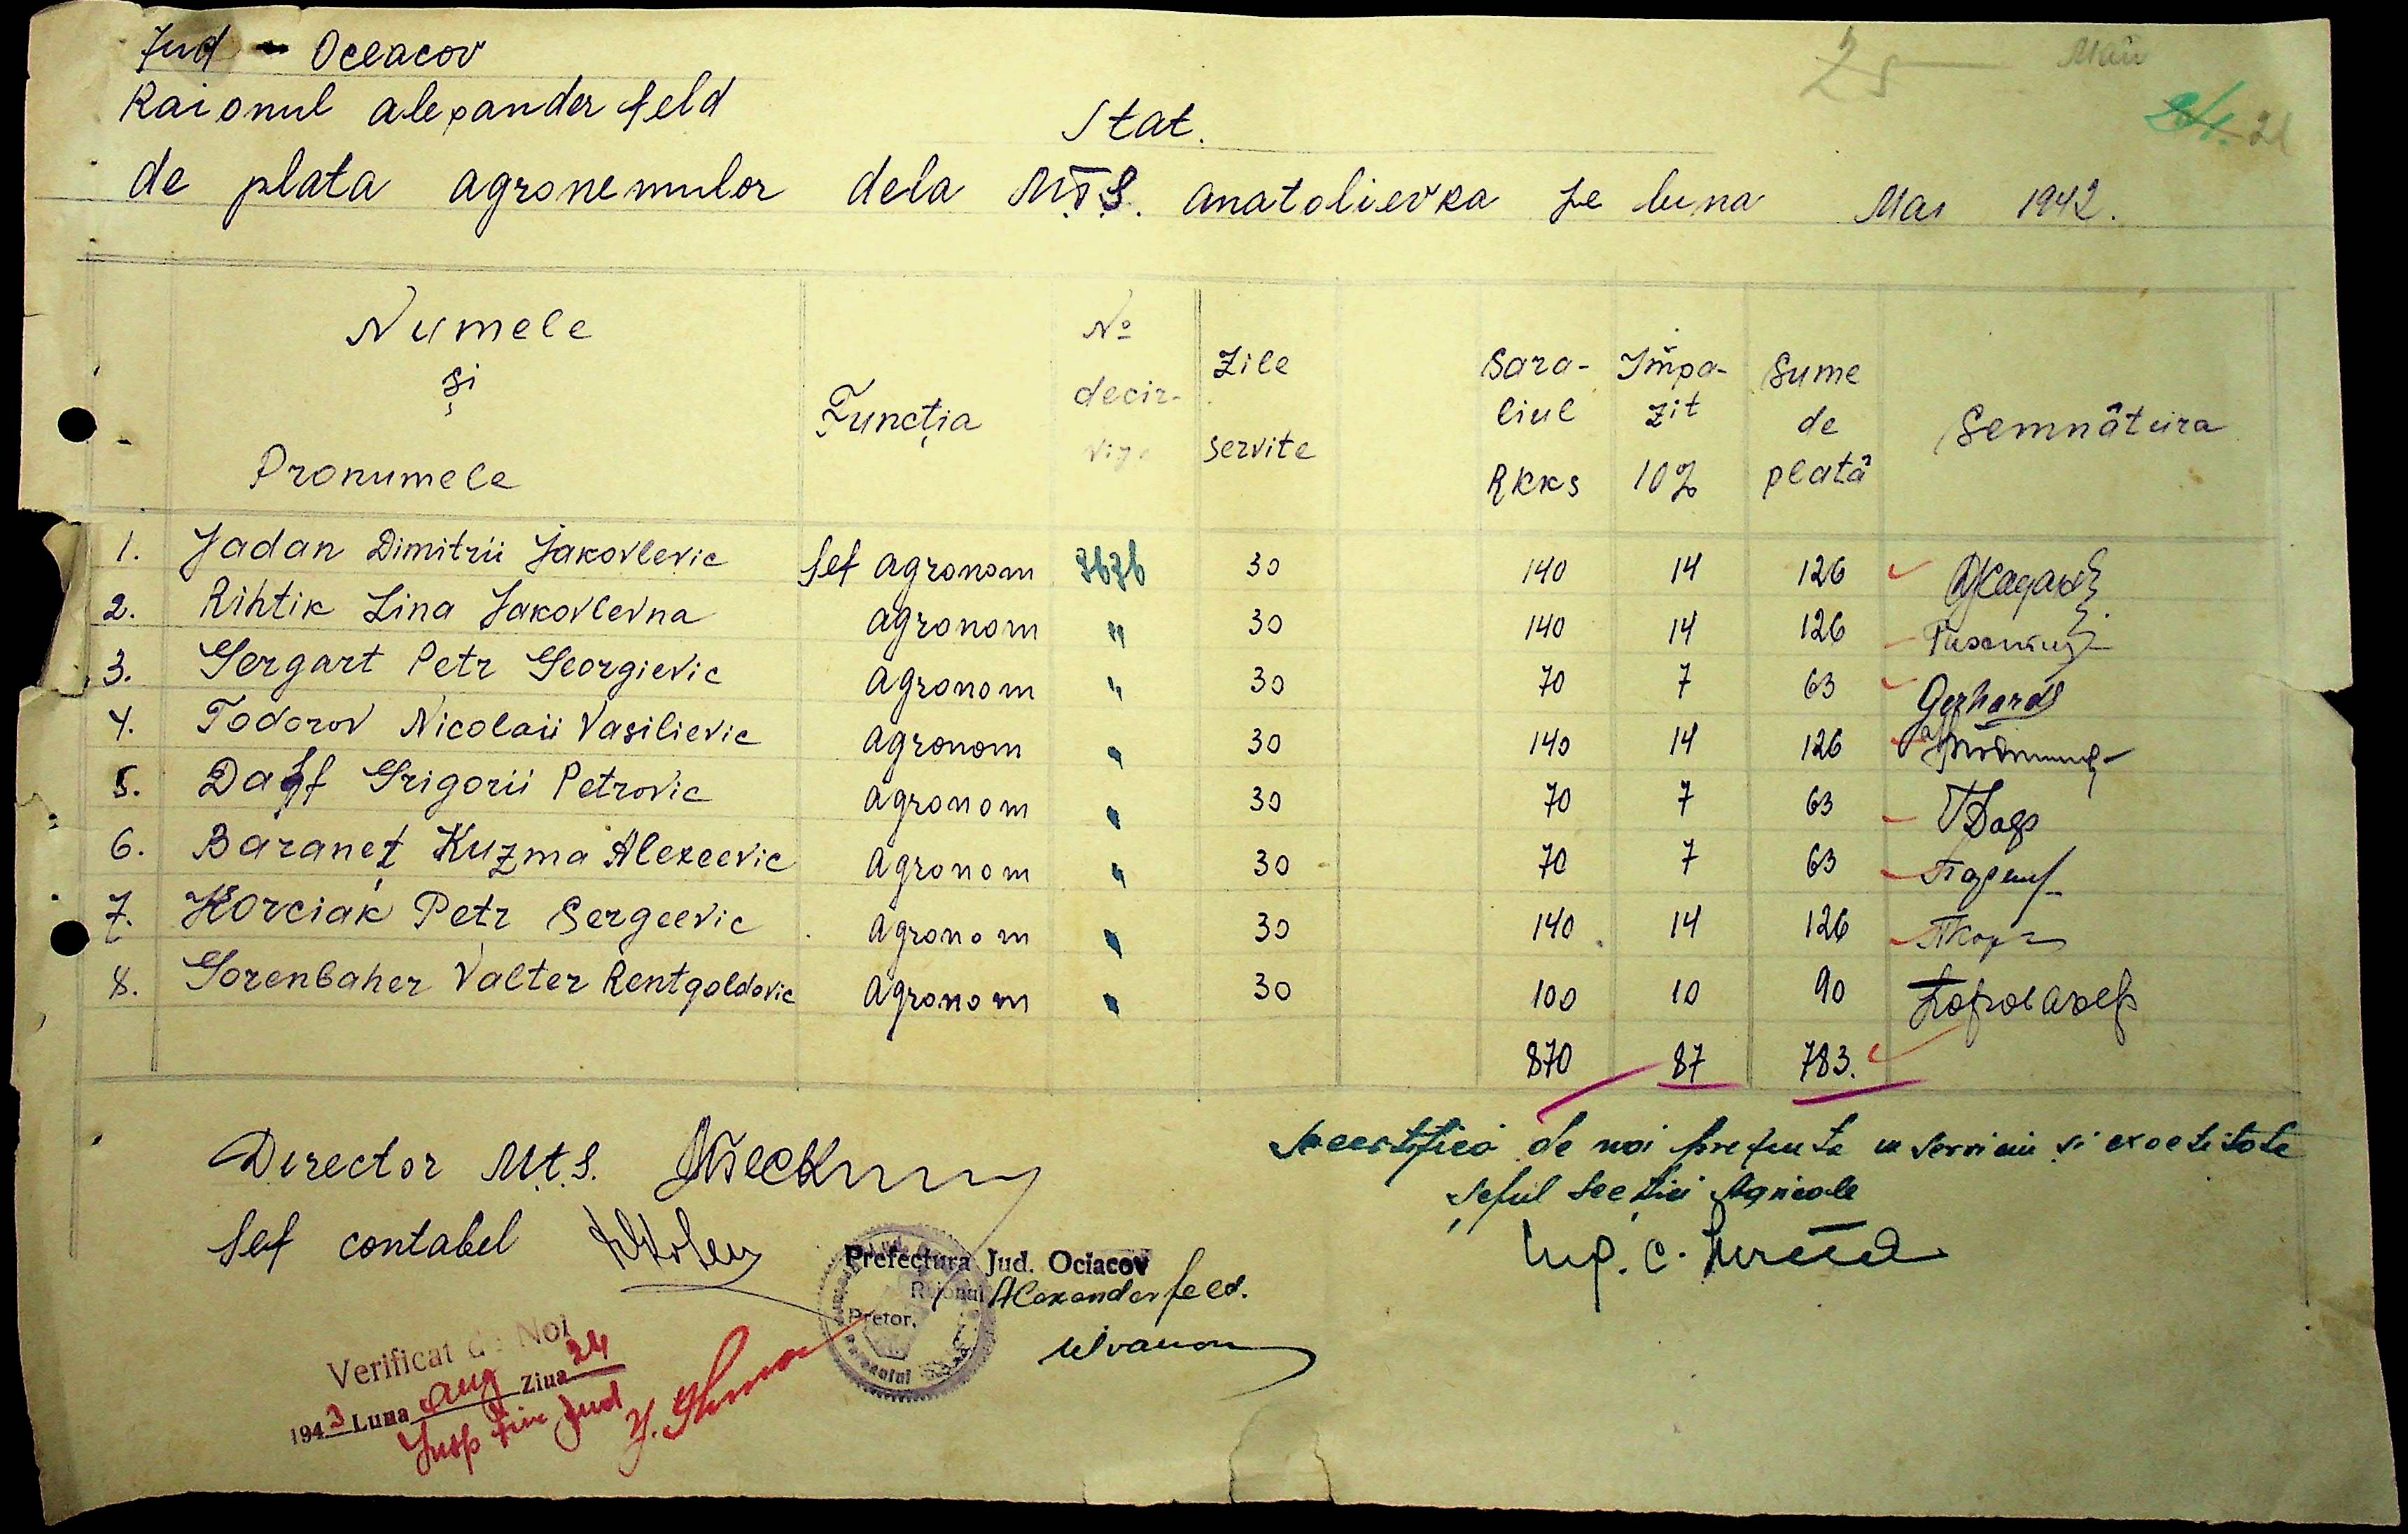 Jud - Oceacov
Raionul alexander feld
25 Mai
21
Stat.
de plata agronemulor dela M.T.S. anatolievka pe luna Mai 1942.
Numele și Pronumele Funcția № decir- Zile servite Sara-liul Rkks Impo-zit 10% Sume de plată Semnătura
1. Jadan Dimitrii Jakovlevic Șef agronom 30 140 14 126
2. Rihtik Lina Jakovlevna agronom " 30 140 14 126
3. Gergart Petr Georgievic agronom " 30 70 7 63 Gerhard
4. Todorov Nicolaii Vasilievic agronom " 30 140 14 126
5. Daff Grigorii Petrovic agronom " 30 70 7 63
6. Baraneț Kuzma Alexeevic agronom " 30 70 7 63
7. Korciak Petr Sergeevic agronom " 30 140 14 126
8. Gorenbaher Valter Rentgoldovic agronom " 30 100 10 90
870 87 783.
Director M.t.S.
Șef contabel
Se certifică de noi prezența in serviciu și exactitate
Șeful Secției Agricole
Ing. C.
Prefectura Jud. Ociacov
Raionul Alexanderfeld.
Pretor,
Verificat de Noi
1943 Luna aug Ziua 24
Insp fin Jud